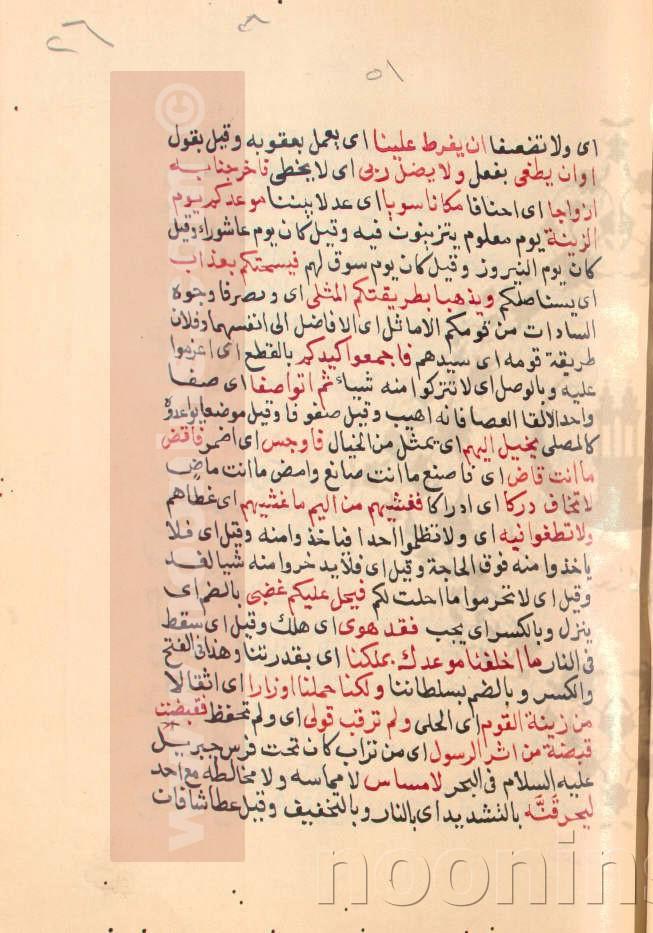 ٢٦
٥١
اى ولا تضعفا ان يفرط علينا اى يعمل بعقوبه وقيل بقول
اوان يطغى بفعل ولا يضل ربى اى لا يخطى فاخرجنا به
ازواجا اى اصنافا مكانا سويا اى عدلا بيننا موعدكم يوم
الزينة يوم معلوم يتزينون فيه وقيل كان يوم عاشورا وقيل
كان يوم النيروز وقيل كان يوم سوق لهم فيسحتكم بعذاب
اى يستاصلكم ويذهبا بطريقتكم المثلى اى ويصرفا وجوه
السادات من قومكم الاماثل اى الافاضل الى انفسهما وفلان
طريقة قومه اى سيدهم فاجمعوا كيدكم بالقطع اى اعزموا
عليه وبالوصل اى لا تتركوا منه شيباء ثم اتوا صفا اى صفا
واحدا لالقا العصا فانه اهيب وقيل صفوفا وقيل موضعا
كالمصلى يخيل اليهم اى يمثل من الخيال فاوجس اى اضمر فاقض
ما انت قاض اى فاصنع ما انت صانع وامض ما انت ماض
لا تخاف دركا اى ادراكا فغشيهم من اليم ما غشيهم اى غطاهم
ولا تطغوا فيه اى ولا تظلموا احدا فتاخذوا منه وقيل اى فلا
ياخذوا منه فوق الحاجة وقيل اى فلا يدخروا منه شيا لغد
وقيل اى لا تحرموا ما احلت لكم فيحل عليكم غضبى بالضم اى
ينزل وبالكسر اى يجب فقد هوى اى هلك وقيل اى سقط
فى النار ما اخلفنا موعدك بملكنا اى بقدرتنا وهذا فى الفتح
والكسر وبالضم بسلطاننا ولكنا حملنا اوزارا اى اثقالا
من زينة القوم اى الحلى ولم ترقب قولى اى ولم تحفظ فقبضت
قبضة من اثر الرسول اى من تراب كان تحت فرس جبريل
عليه السلام فى البحر لا مساس لا مماسه ولا مخالطه مع احد
لنحرقنه بالتشديد اى بالنار وبالتخفيف وقيل عطاشا فان
noonins